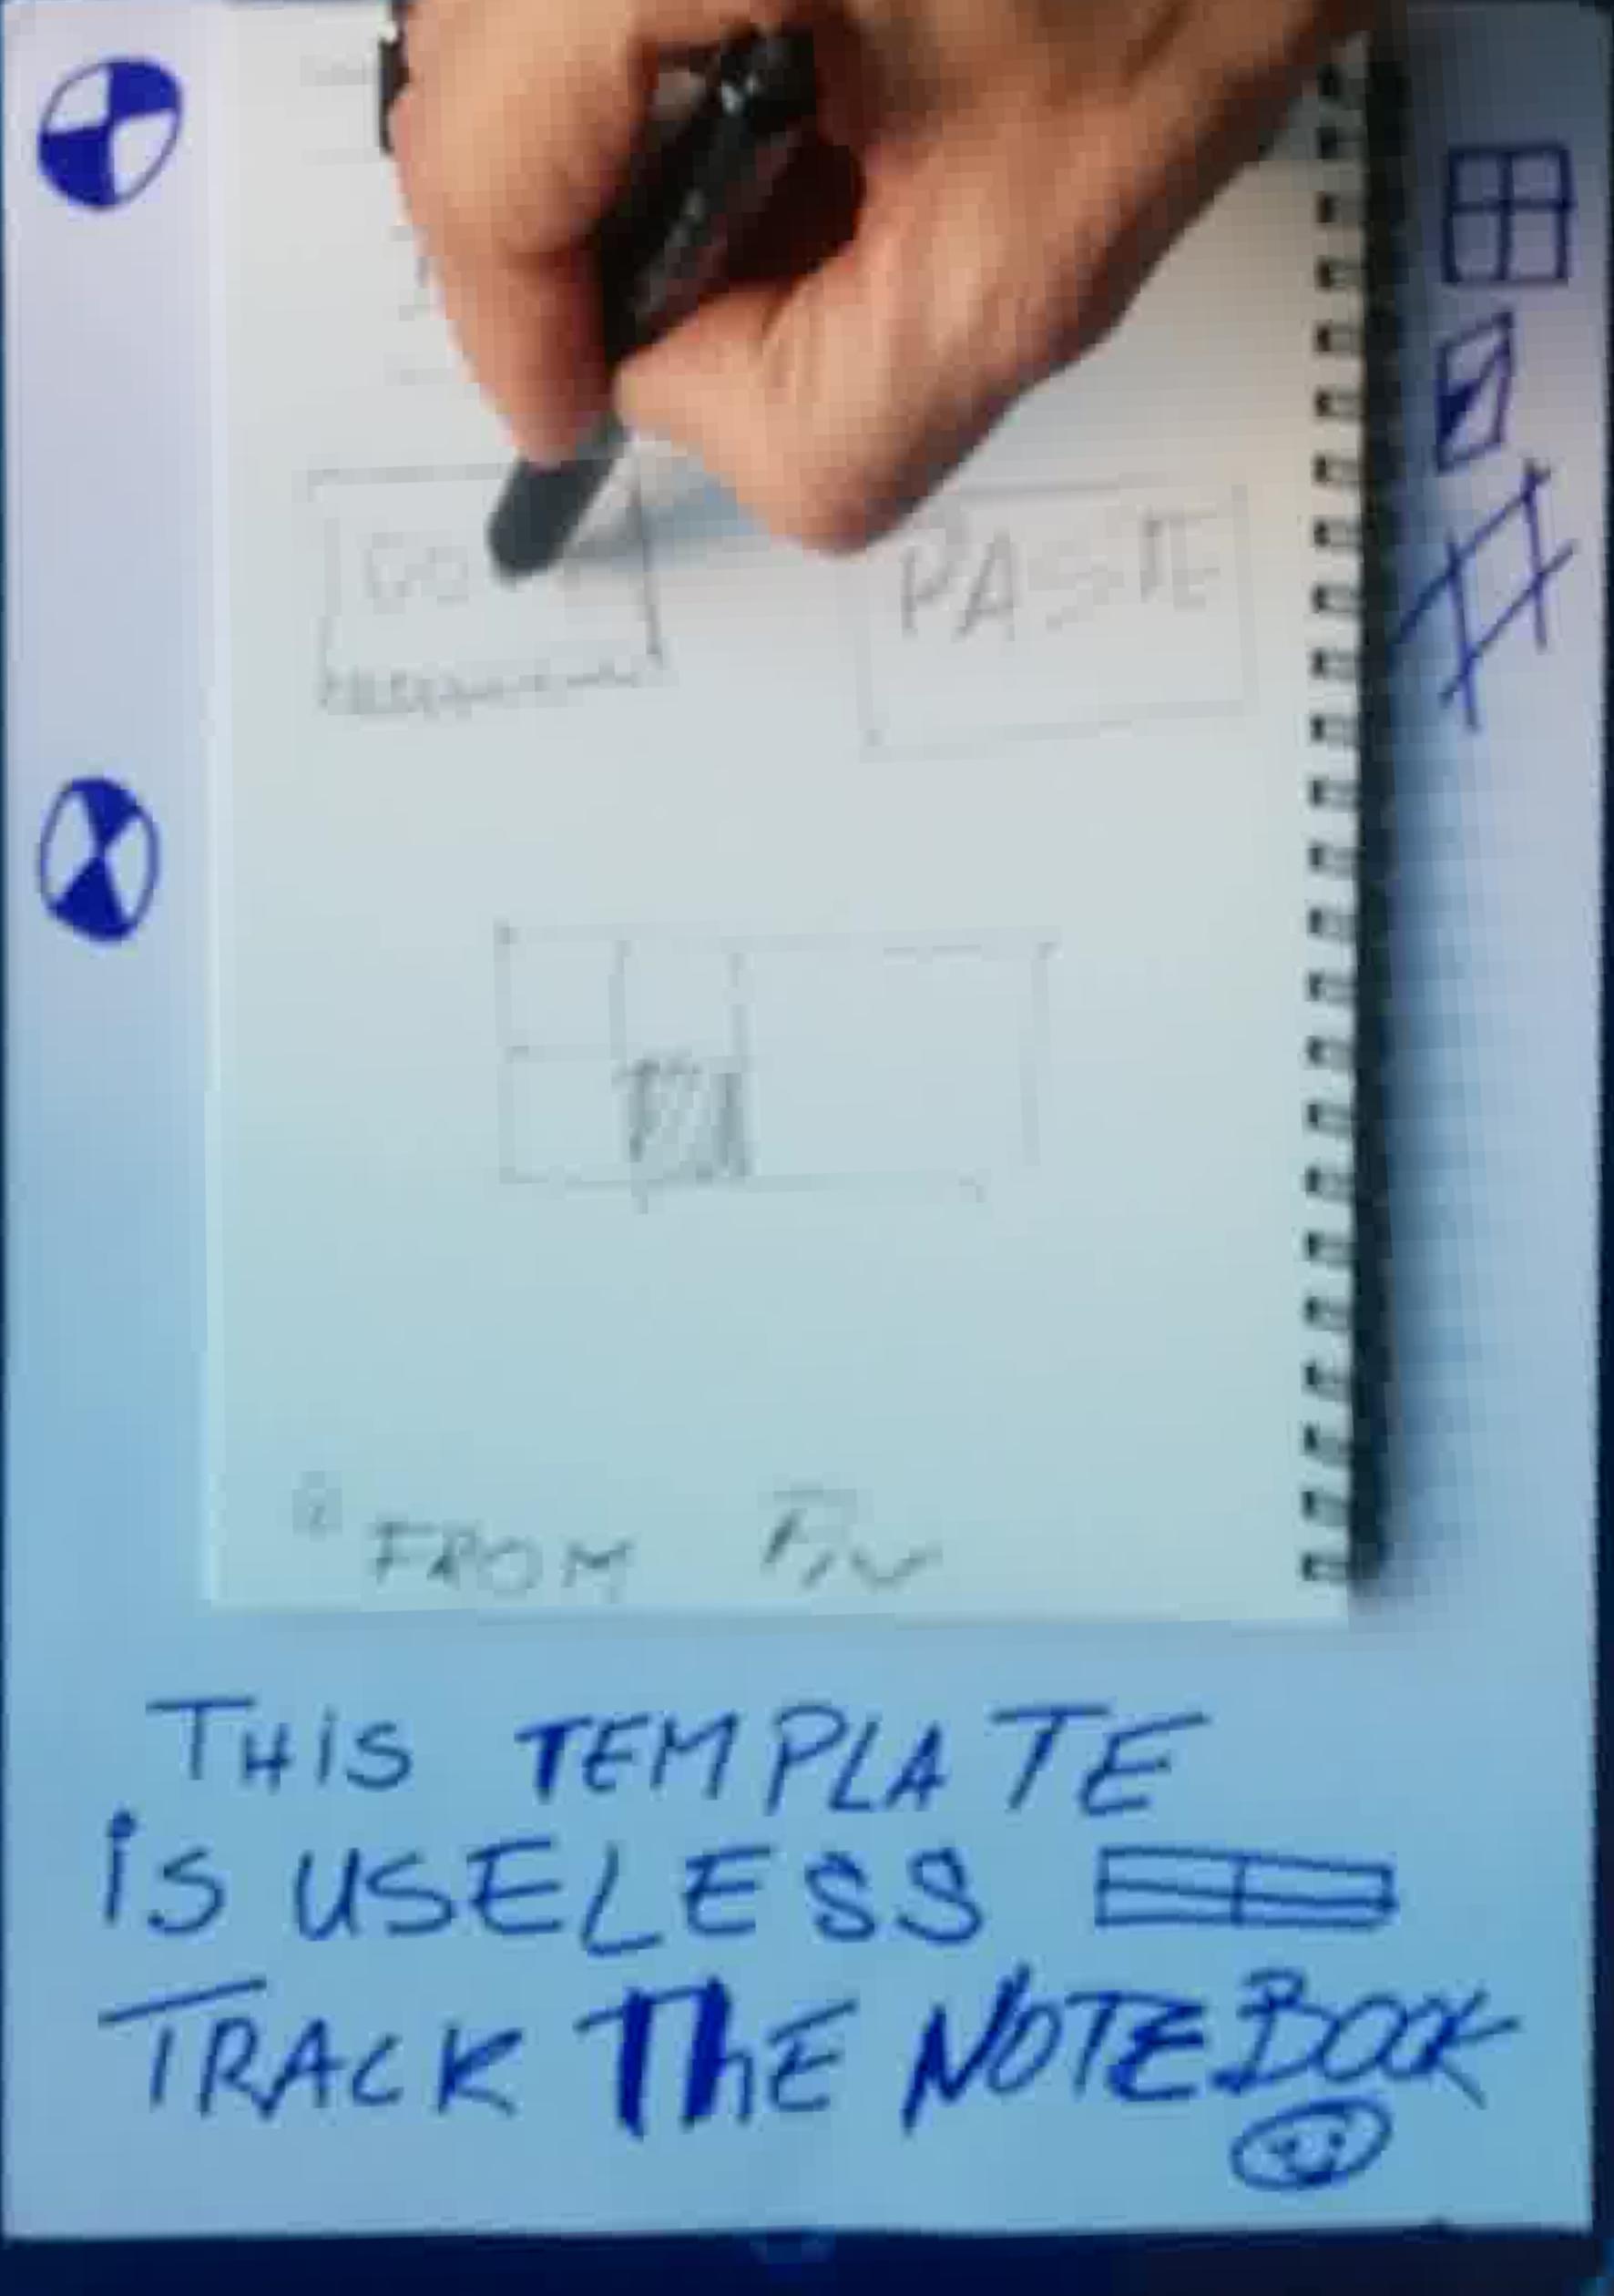 PASTE
FROM
THIS TEMPLATE
is USELESS
TRACK ThE NOTEBOOK